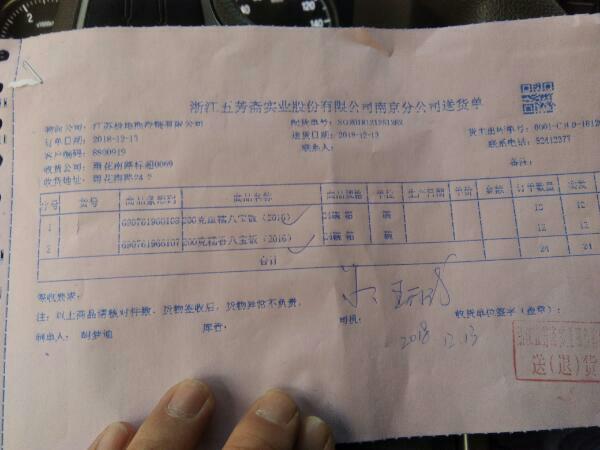 浙江五芳斋实业股份有限公司南京分公司送货单
物流公司：江苏极地熊冷链有限公司
配货单号：
订单日期：2018-12-13
送货日期：2018-12-13
客户编码：8800919
联系人：
联系电话：52412377
收货公司：雨花南路标超0069
收货地址：雨花南路24-2
备注：
序号 货号 商品条形码 商品名称 商品规格 单位 生产日期 单价 金额 订单数量 实发
1 200克血糯八宝饭（2016） 箱 12 12
2 200克糯香八宝饭（2016） 箱 12 12
合计 24 24
签收要求：
注：以上商品请核对件数，货物签收后，货物异常不负责。
制单人： 库管： 司机： 收货单位签字（盖章）：
2018 12.13
送（退）货